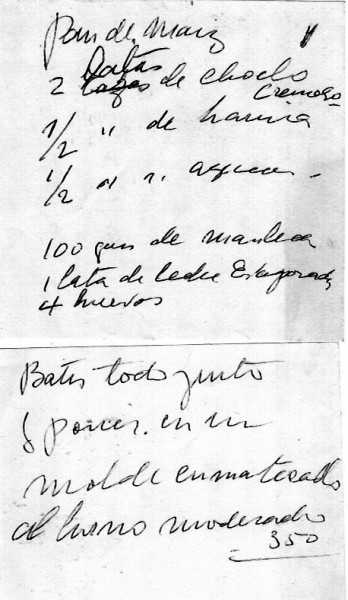 Pan de Maiz
Latas
2 tazas de choclo
Cremoso
1/2 " de harina
1/2 " " azucar
100 gms de manteca
1 lata de leche Evaporada
4 huevos
Batir todo junto
y poner en un
molde enmantecado
al horno moderado
350